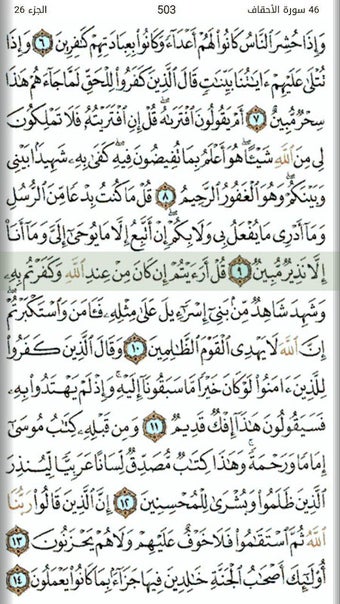 46 سورة الأحقاف 503 الجزء 26
وَإِذَا حُشِرَ النَّاسُ كَانُوا لَهُمْ أَعْدَاءً وَكَانُوا بِعِبَادَتِهِمْ كَافِرِينَ ٦ وَإِذَا
تُتْلَىٰ عَلَيْهِمْ ءَايَاتُنَا بَيِّنَاتٍ قَالَ الَّذِينَ كَفَرُوا لِلْحَقِّ لَمَّا جَاءَهُمْ هَٰذَا
سِحْرٌ مُّبِينٌ ٧ أَمْ يَقُولُونَ افْتَرَىٰهُ ۖ قُلْ إِنِ افْتَرَيْتُهُ فَلَا تَمْلِكُونَ
لِي مِنَ اللَّهِ شَيْـًٔا ۖ هُوَ أَعْلَمُ بِمَا تُفِيضُونَ فِيهِ ۖ كَفَىٰ بِهِ شَهِيدًا بَيْنِي
وَبَيْنَكُمْ ۖ وَهُوَ الْغَفُورُ الرَّحِيمُ ٨ قُلْ مَا كُنتُ بِدْعًا مِّنَ الرُّسُلِ
وَمَا أَدْرِي مَا يُفْعَلُ بِي وَلَا بِكُمْ ۖ إِنْ أَتَّبِعُ إِلَّا مَا يُوحَىٰ إِلَيَّ وَمَا أَنَا۠
إِلَّا نَذِيرٌ مُّبِينٌ ٩ قُلْ أَرَءَيْتُمْ إِن كَانَ مِنْ عِندِ اللَّهِ وَكَفَرْتُم بِهِ
وَشَهِدَ شَاهِدٌ مِّنۢ بَنِي إِسْرَٰٓءِيلَ عَلَىٰ مِثْلِهِ فَـَٔامَنَ وَاسْتَكْبَرْتُمْ ۖ
إِنَّ اللَّهَ لَا يَهْدِي الْقَوْمَ الظَّالِمِينَ ١٠ وَقَالَ الَّذِينَ كَفَرُوا
لِلَّذِينَ ءَامَنُوا لَوْ كَانَ خَيْرًا مَّا سَبَقُونَا إِلَيْهِ ۚ وَإِذْ لَمْ يَهْتَدُوا بِهِ
فَسَيَقُولُونَ هَٰذَا إِفْكٌ قَدِيمٌ ١١ وَمِن قَبْلِهِ كِتَابُ مُوسَىٰ
إِمَامًا وَرَحْمَةً ۚ وَهَٰذَا كِتَابٌ مُّصَدِّقٌ لِّسَانًا عَرَبِيًّا لِّيُنذِرَ
الَّذِينَ ظَلَمُوا وَبُشْرَىٰ لِلْمُحْسِنِينَ ١٢ إِنَّ الَّذِينَ قَالُوا رَبُّنَا
اللَّهُ ثُمَّ اسْتَقَامُوا فَلَا خَوْفٌ عَلَيْهِمْ وَلَا هُمْ يَحْزَنُونَ ١٣
أُولَٰئِكَ أَصْحَابُ الْجَنَّةِ خَالِدِينَ فِيهَا جَزَاءً بِمَا كَانُوا يَعْمَلُونَ ١٤